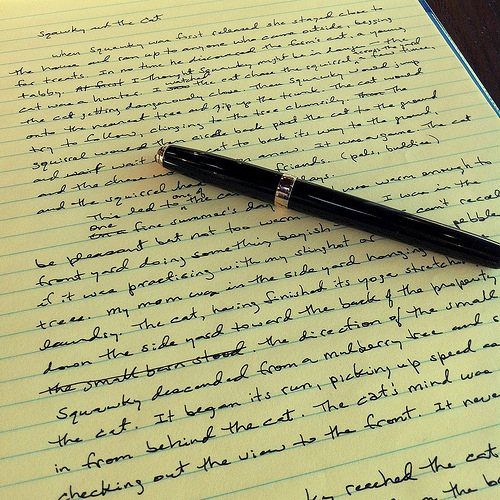 Squawky and the Cat
When Squawky was first released she stayed close to
the house and ran up to anyone who came outside, begging
for treats. In no time he discovered the farm's cat, a young,
tabby. At first I thought Squawky might be in danger, the
cat was a hunter. I watched the cat chase the squirrel across the three times,
the cat getting dangerously close. Then Squawky would jump
onto the nearest tree and zip up the trunk. The cat would
try to follow, clinging to the tree clumsily. Then the
squirrel would circle back past the cat to the ground
and wait cat to back its way to the ground,
and the chase anew. It was a game. The cat
and the squirrel had friends. (pals, buddies)
This led to the days.
one fine summer's day was warm enough to
be pleasant but not too warm I was in the
front yard doing something boyish can't recall
if it was practising with my slingshot or pebbles
trees. My mom was in the side yard hanging
laundry. The cat, having finished its yoga stretching
down the side yard toward the back of the property
the small barn stood. the direction of the small
Squawky descended from a mulberry tree and
the cat. It began its run, picking up speed
in from behind the cat. The cat's mind was
checking out the view to the front. It never
reached the cat
the